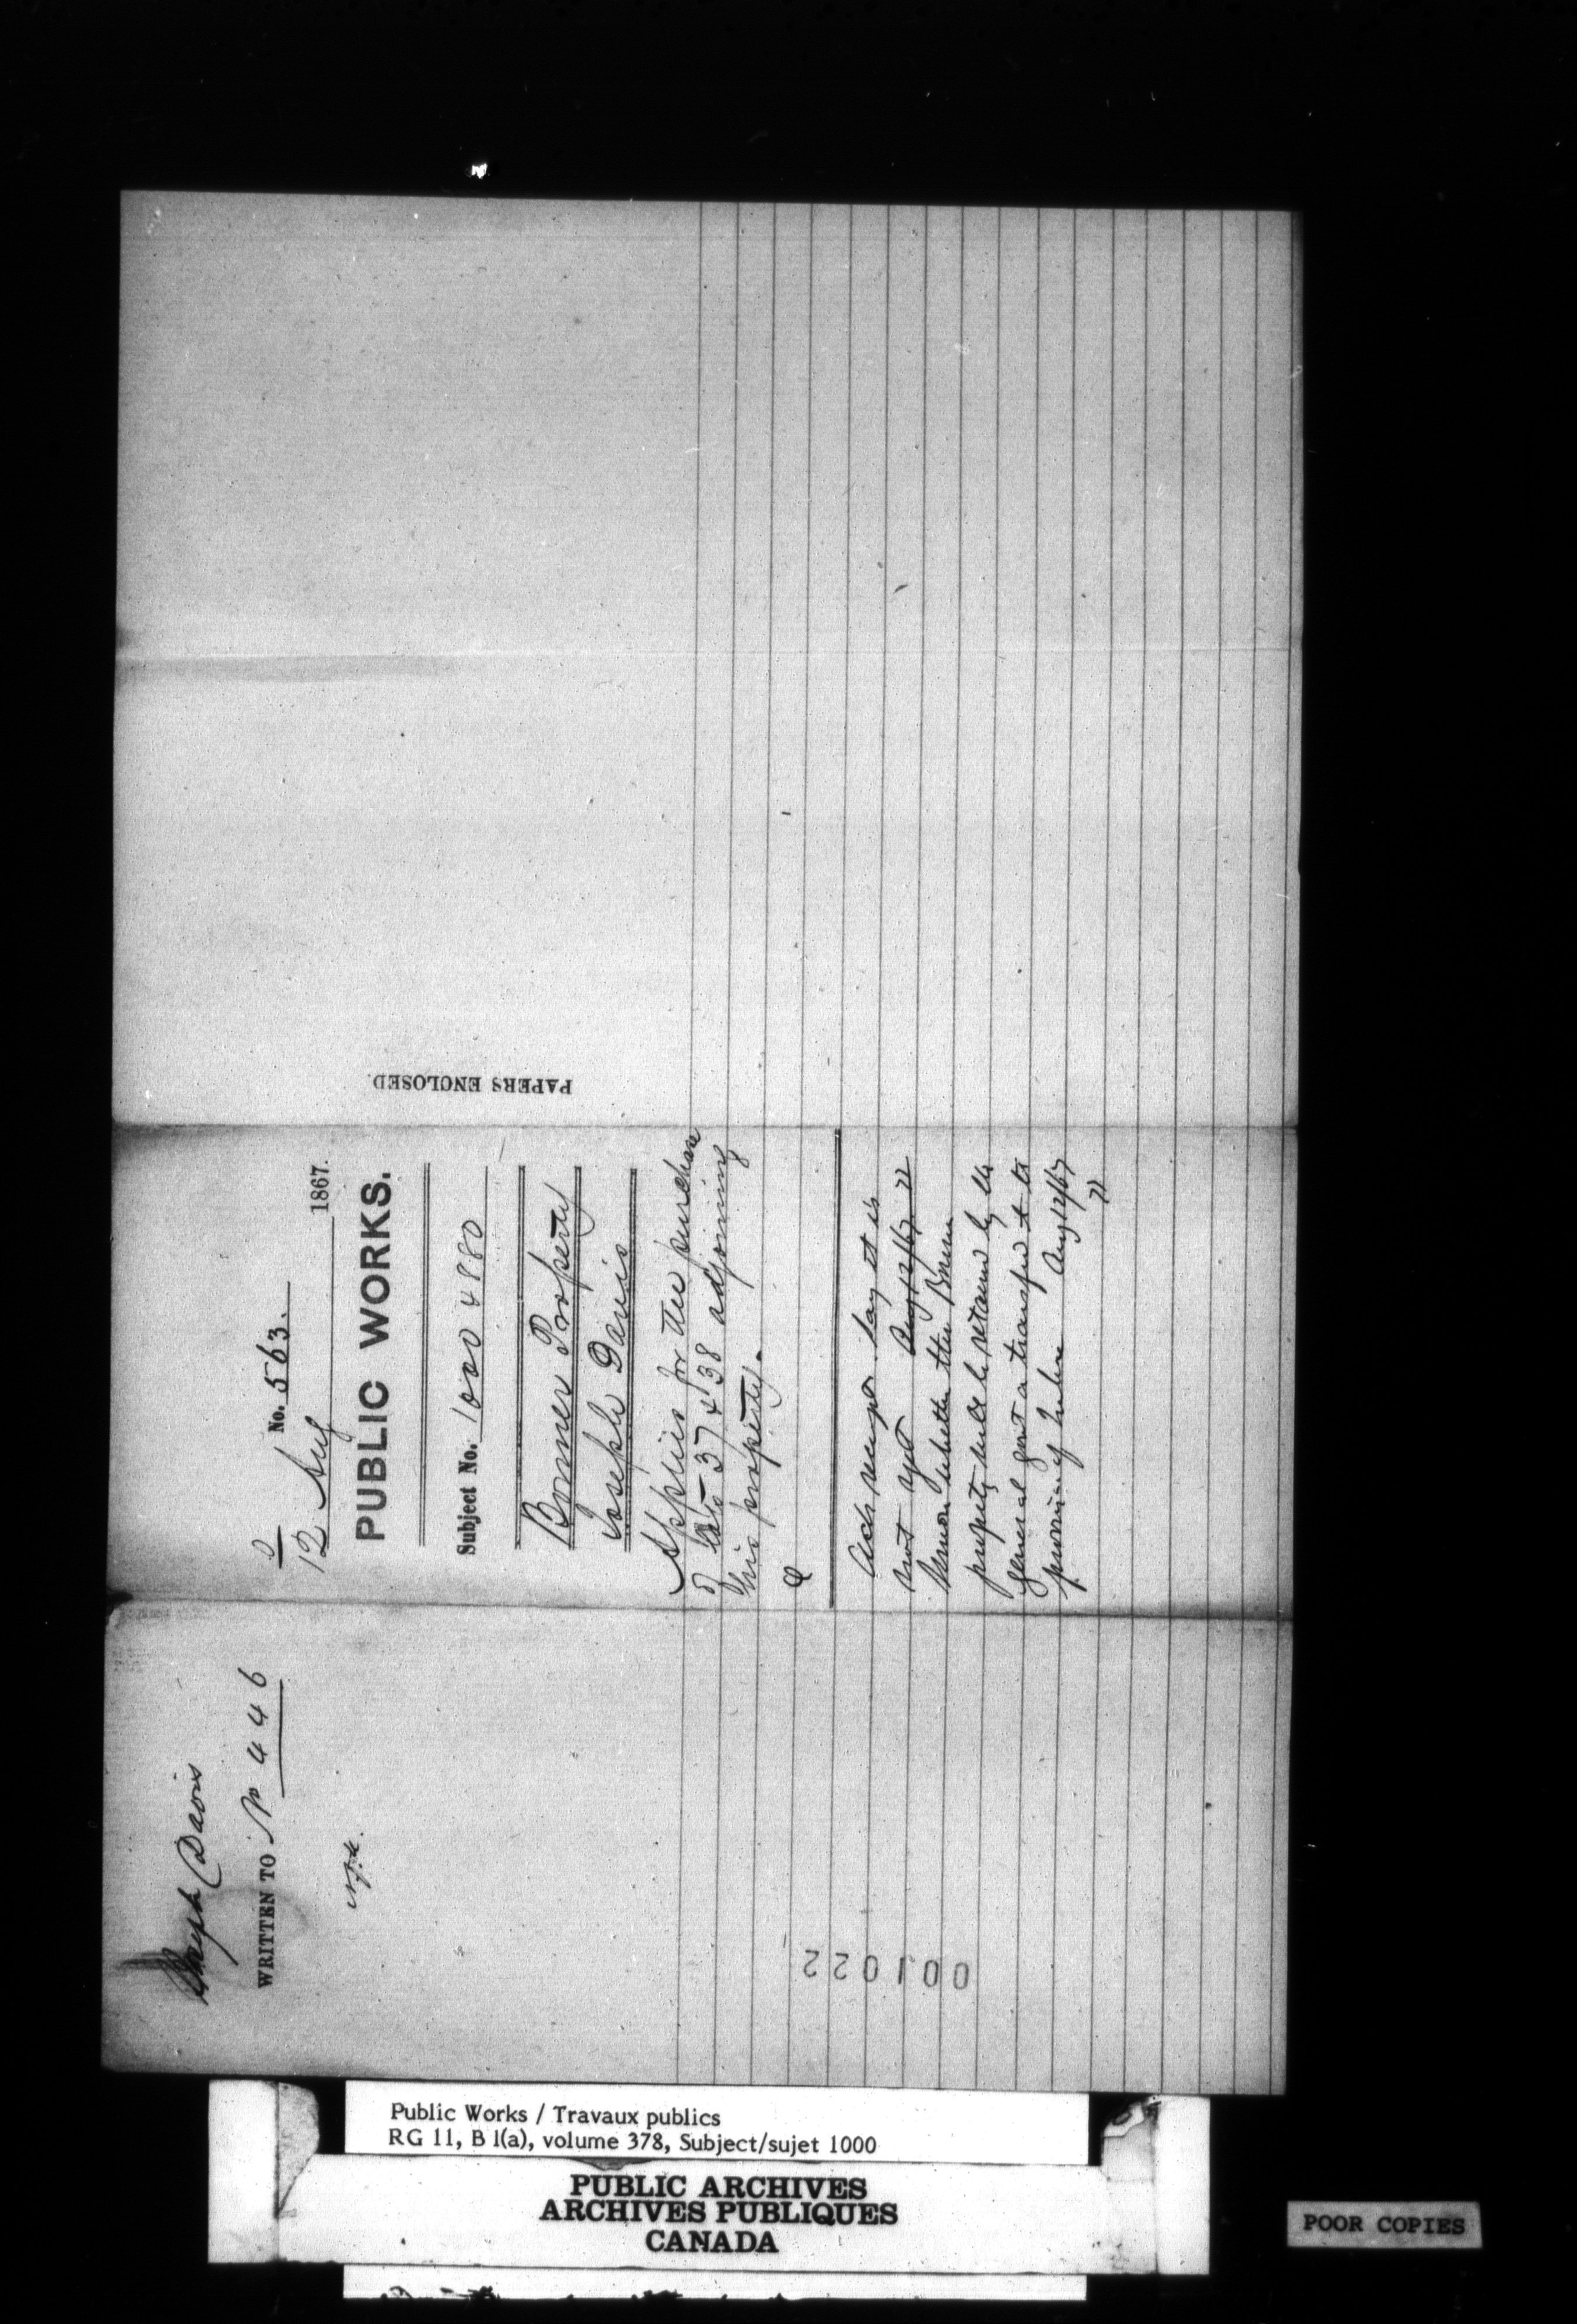 Joseph Davis
WRITTEN TO No 446
No. 563.
12 Aug 1867.
PUBLIC WORKS.
Subject No. 1000 & 880
Bonner Property
Joseph Davis
Applies for the purchase
of lots 37 & 38 adjoining
his property.
Ack receipt. Say it is
not yet Aug 12/67
known whether the Bonner
property will be retained by the
general govt or transferred to the
province of Quebec Aug 12/67
PAPERS ENCLOSED.
001022
Public Works / Travaux publics
RG 11, B 1(a), volume 378, Subject/sujet 1000
PUBLIC ARCHIVES
ARCHIVES PUBLIQUES
CANADA
POOR COPIES